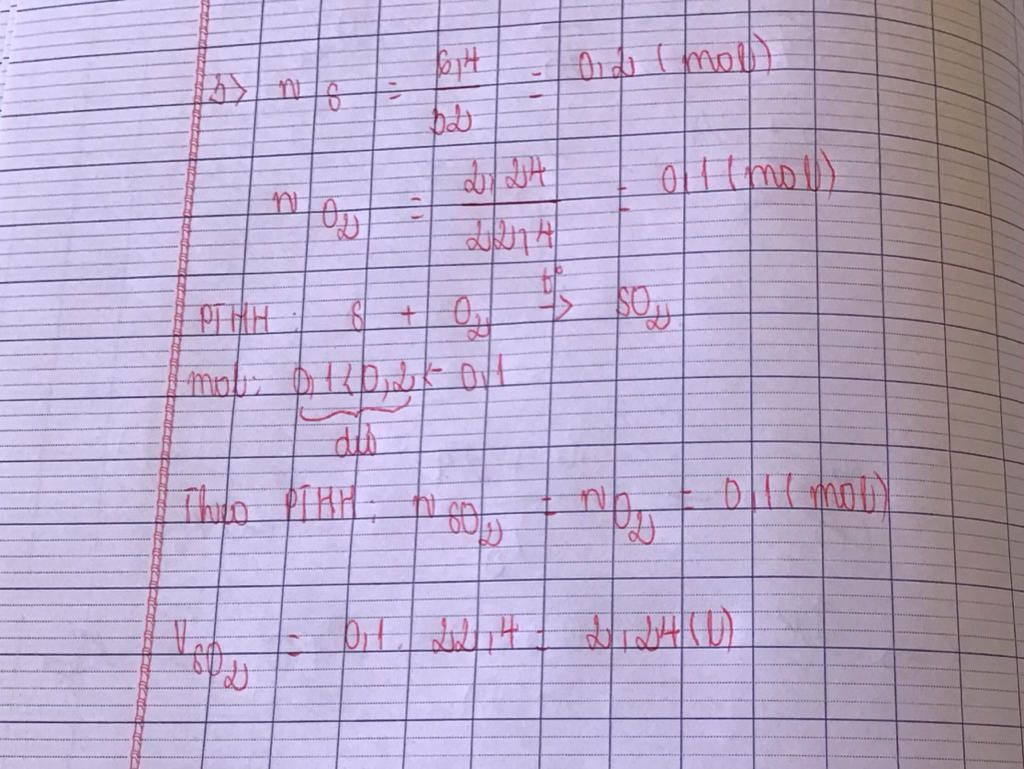 b> n S = 6,4 / 32 = 0,2 (mol)
n O2 = 2,24 / 22,4 = 0,1 (mol)
PTHH: S + O2 t° -> SO2
mol: 0,1 < 0,2 <- 0,1
dư
Theo PTHH: n SO2 = n O2 = 0,1 (mol)
V SO2 = 0,1. 22,4 = 2,24 (l)